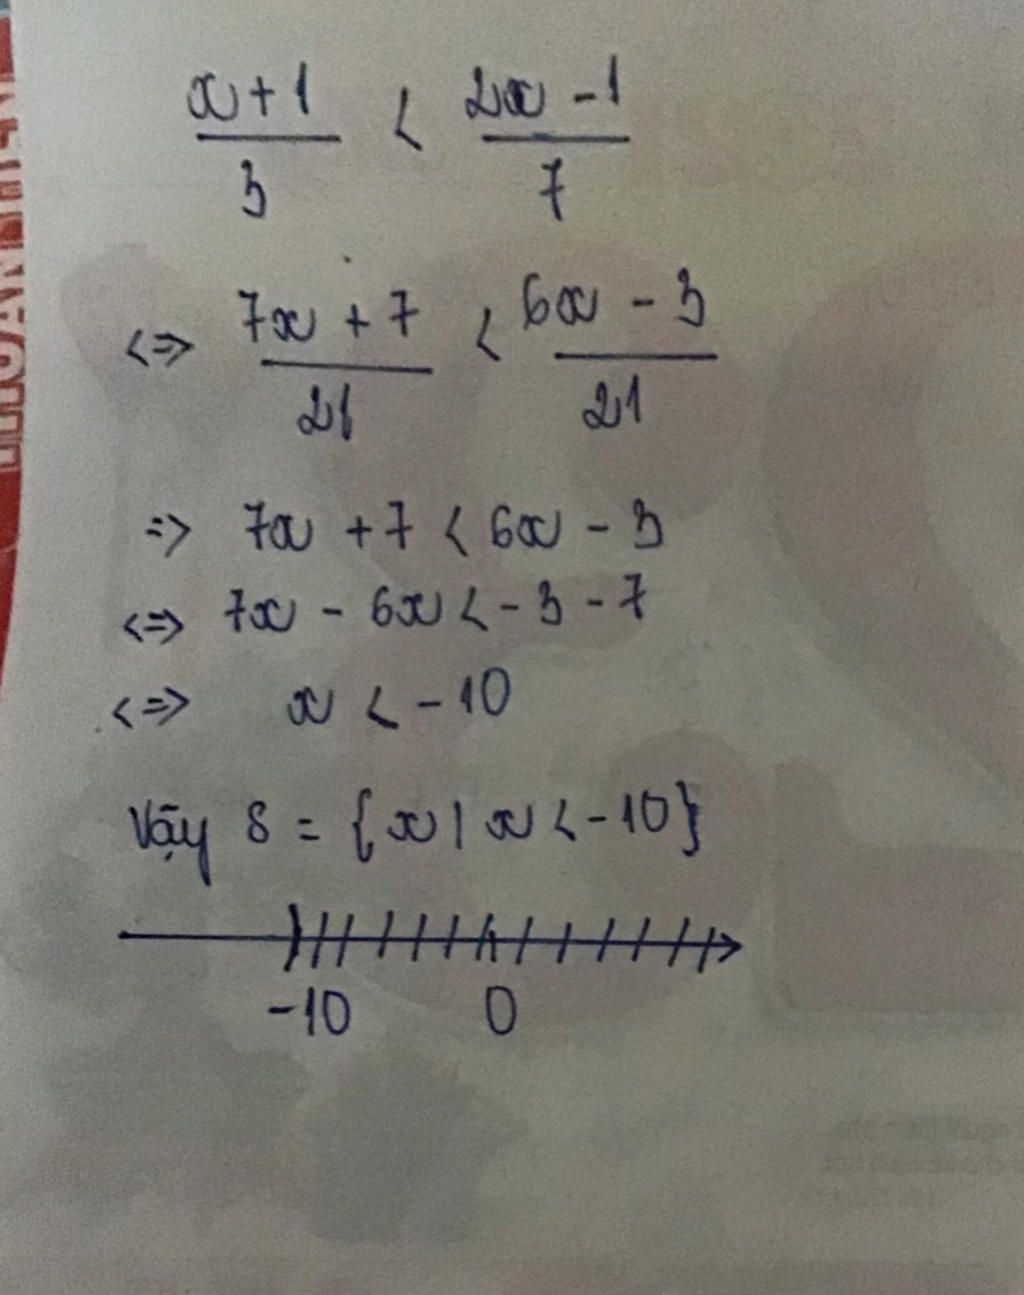 x + 1 < 2x - 1
3 7
<=> 7x + 7 < 6x - 3
21 21
=> 7x + 7 < 6x - 3
<=> 7x - 6x < - 3 - 7
<=> x < - 10
Vậy S = {x | x < - 10}
-10 0